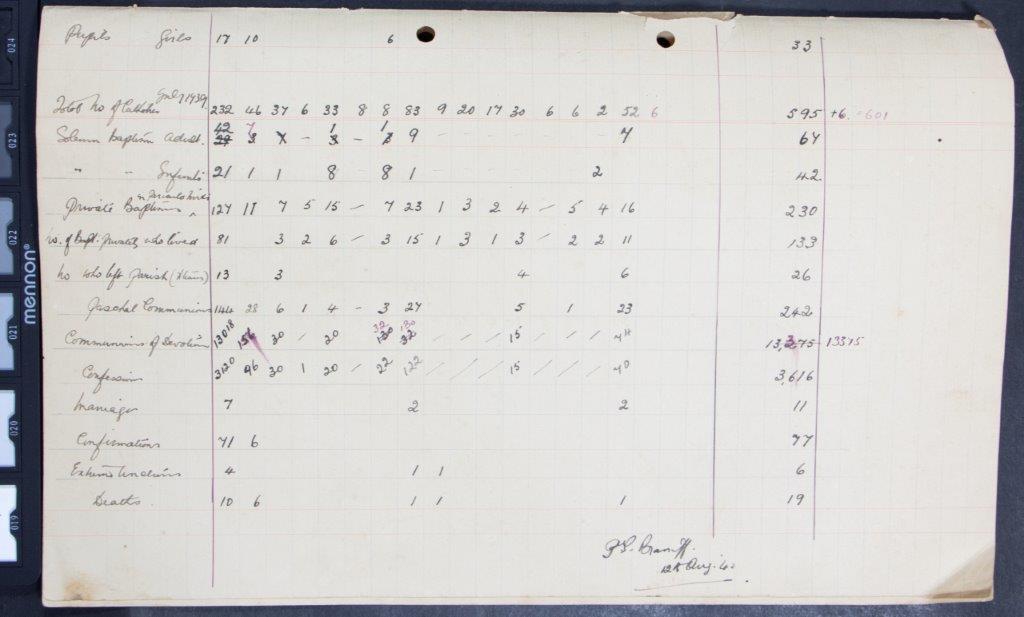 Pupils Girls 17 10 6 33
July 1939
Total No of Catholics 232 46 37 6 33 8 8 83 9 20 17 30 6 6 2 52 6 595 +6 = 601
42 7 1 1
Solemn Baptism Adult. 3 - 3 - 9 - - - - 7 64
" " Infants 21 1 1 8 8 1 2 42
in Periculo Mortis
Private Baptisms 127 11 7 5 15 - 7 23 1 3 2 4 - 5 4 16 230
No. of Bapt. privately who lived 81 3 2 6 - 3 15 1 3 1 3 - 2 2 11 133
No who left parish 13 3 4 6 26
Paschal Communions 144 28 6 1 4 - 3 27 5 1 23 242
32 130
Communions of Devotion 13018 30 / 20 / 130 32 / / / 15 / / / 13,275 - 13375
Confession 3120 96 30 1 20 / 22 122 / / / 15 / / / 40 3,616
Marriages 7 2 2 11
Confirmations 71 6 77
Extreme Unctions 4 1 1 6
Deaths. 10 6 1 1 1 19
12th Aug.
mennon®
024
023
022
021
020
019